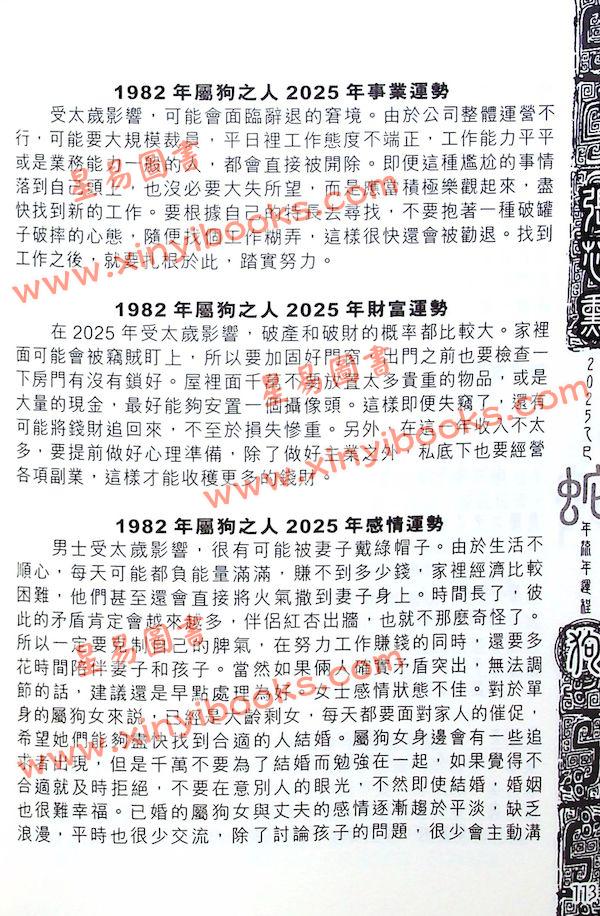 1982年屬狗之人2025年事業運勢
受太歲影響，可能會面臨辭退的窘境。由於公司整體運營不
行，可能要大規模裁員，平日裡工作態度不端正，工作能力平平
或是業務能力一般的人，都會直接被開除。即便這種尷尬的事情
落到自己頭上，也沒必要大失所望，而是應當積極樂觀起來，盡
快找到新的工作。要根據自己的特長去尋找，不要抱著一種破罐
子破摔的心態，隨便找個工作糊弄，這樣很快還會被勸退。找到
工作之後，就要扎根於此，踏實努力。
1982年屬狗之人2025年財富運勢
在2025年受太歲影響，破產和破財的概率都比較大。家裡
面可能會被竊賊盯上，所以要加固好門窗，出門之前也要檢查一
下房門有沒有鎖好。屋裡面千萬不要放置太多貴重的物品，或是
大量的現金，最好能夠安置一個攝像頭。這樣即便失竊了，還有
可能將錢財追回來，不至於損失慘重。另外，在這一年收入不太
多，要提前做好心理準備，除了做好主業之外，私底下也要經營
各項副業，這樣才能收穫更多的錢財。
1982年屬狗之人2025年感情運勢
男士受太歲影響，很有可能被妻子戴綠帽子。由於生活不
順心，每天可能都負能量滿滿，賺不到多少錢，家裡經濟比較
困難，他們甚至還會直接將火氣撒到妻子身上。時間長了，彼
此的矛盾肯定會越來越多，伴侶紅杏出牆，也就不那麼奇怪了。
所以一定要克制自己的脾氣，在努力工作賺錢的同時，還要多
花時間陪伴妻子和孩子。當然如果倆人確實矛盾突出，無法調
節的話，建議還是早點處理為好。女士感情狀態不佳。對於單
身的屬狗女來說，已經是大齡剩女，每天都要面對家人的催促，
希望她們能夠盡快找到合適的人結婚。屬狗女身邊會有一些追
求者出現，但是千萬不要為了結婚而勉強在一起，如果覺得不
合適就及時拒絕，不要在意別人的眼光，不然即使結婚，婚姻
也很難幸福。已婚的屬狗女與丈夫的感情逐漸趨於平淡，缺乏
浪漫，平時也很少交流，除了討論孩子的問題，很少會主動溝
2025乙巳
蛇
年流年運程
狗
113
星易圖書
www.xinyibooks.com
星易圖書
www.xinyibooks.com
星易圖書
www.xinyibooks.com